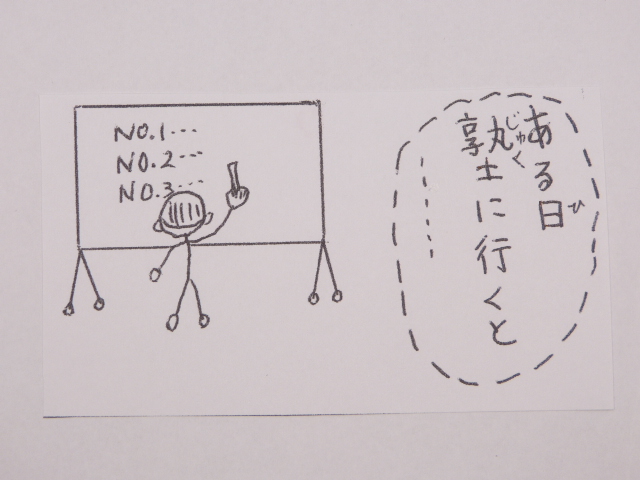 ある日
塾に行くと
......
じゅく
ひ
NO.1...
NO.2...
NO.3...